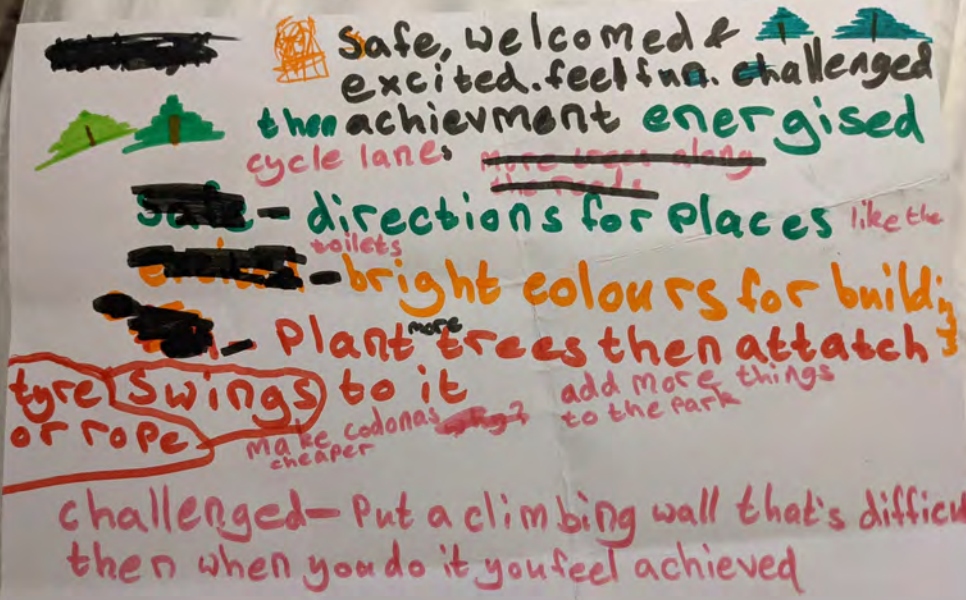 safe, welcomed &
excited. feel fun. challenged
then achievment energised
cycle lanes more trees along
the roads
- directions for places like the
toilets
- bright colours for buildings
- Plant more trees then attatch
tyre swings to it
or rope
add more things
to the park
make codonas
cheaper
challenged - Put a climbing wall that's difficu
then when you do it you feel achieved